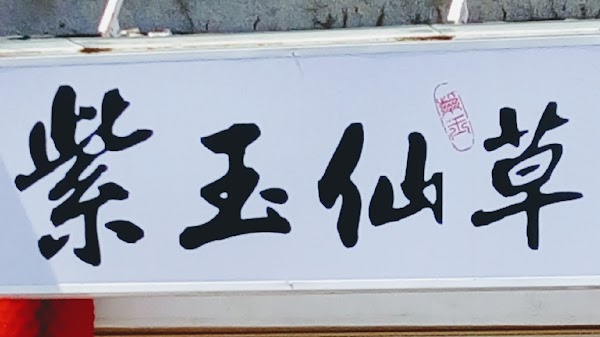 紫玉仙草